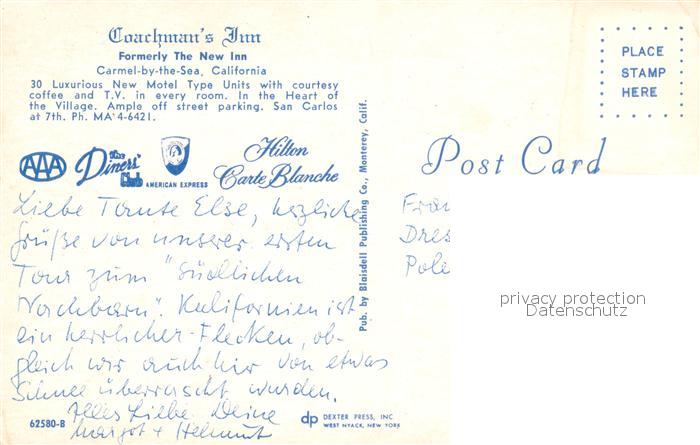 Coachman's Inn
Formerly The New Inn
Carmel-by-the-Sea, California
30 Luxurious New Motel Type Units with courtesy
coffee and T.V. in every room. In the Heart of
the Village. Ample off street parking. San Carlos
at 7th. Ph. MA 4-6421.
AAA
The Diners' Club
AMERICAN EXPRESS
Hilton
Carte Blanche
Liebe Tante Else, herzliche
Grüße von unserer ersten
Tour zum "südlichen
Nachbarn". Kalifornien ist
ein herrlicher Flecken, ob-
gleich wir auch hier von etwas
Schnee überrascht wurden.
Alles Liebe Deine
Margot + Helmut
62580-B
Pub. by Blaisdell Publishing Co., Monterey, Calif.
dp DEXTER PRESS, INC.
WEST NYACK, NEW YORK
PLACE
STAMP
HERE
Post Card
Frau
Dres
Pole
privacy protection
Datenschutz